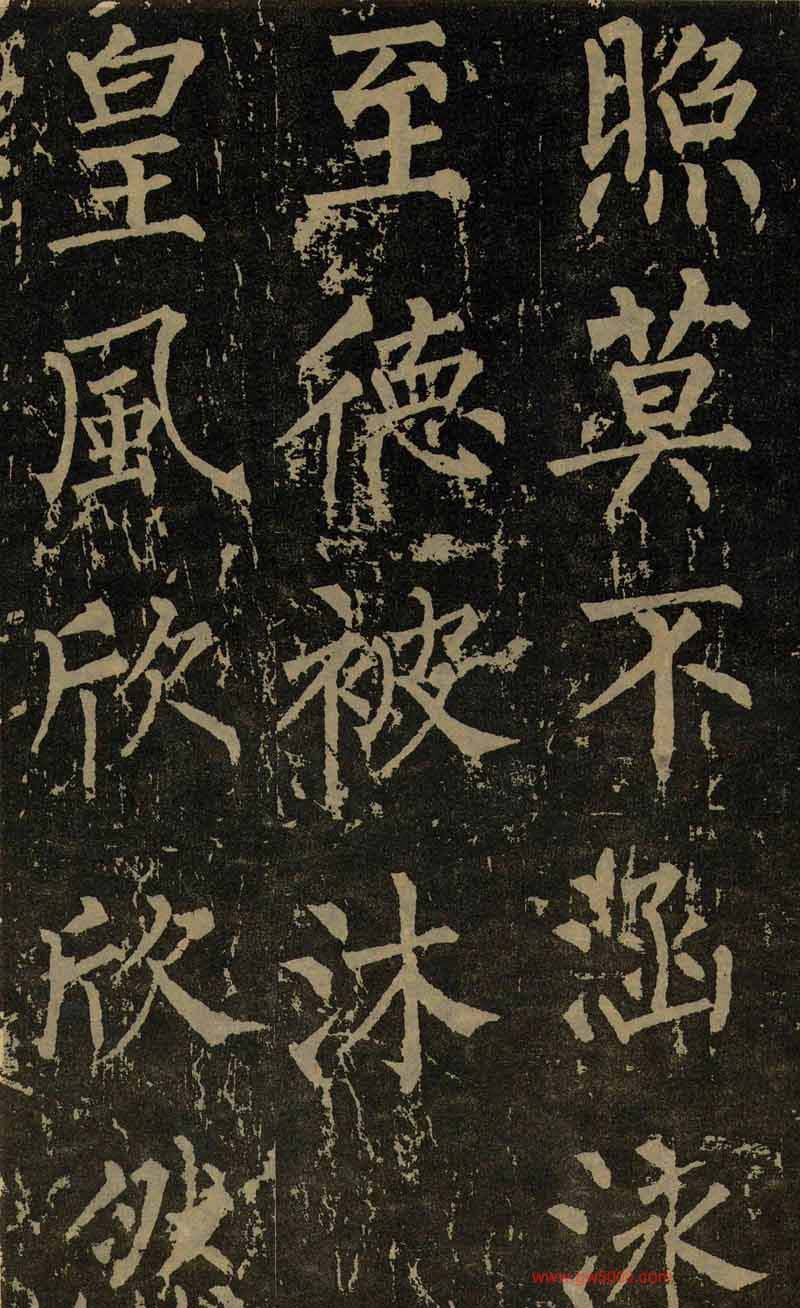 照莫不涵泳
至德被沐
皇風欣欣然
www.gw5000.com